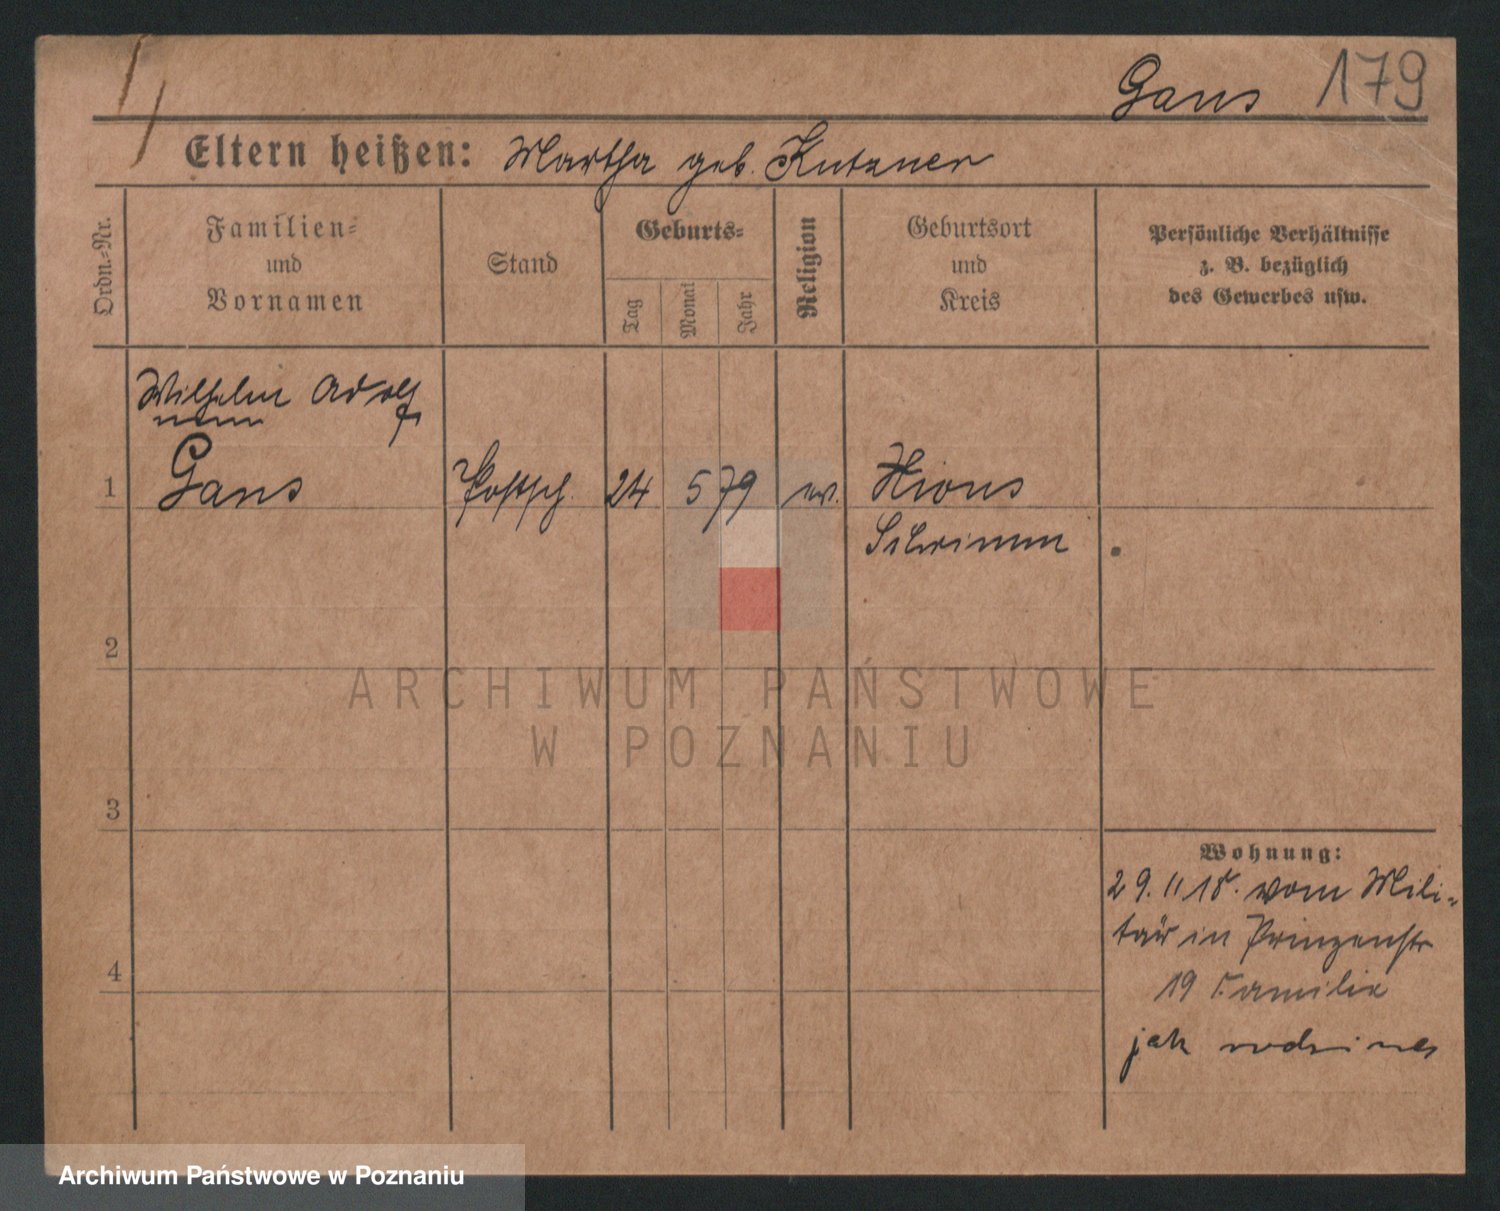 Gans 179
Eltern heißen: Martha geb. Kutzner
Ordn.-Nr.
Familien-
und
Vornamen
Stand
Geburts-
Tag
Monat
Jahr
Religion
Geburtsort
und
Kreis
Persönliche Verhältnisse
z. B. bezüglich
des Gewerbes usw.
Wilhelm Adolf
1 Gans Postsch. 24 5 79 ev. Xions
Schrimm
2
3
4
Wohnung:
29. 11 18. vom Mili-
tär in Prinzenstr
19 Familie
jak
ARCHIWUM PAŃSTWOWE
W POZNANIU
Archiwum Państwowe w Poznaniu